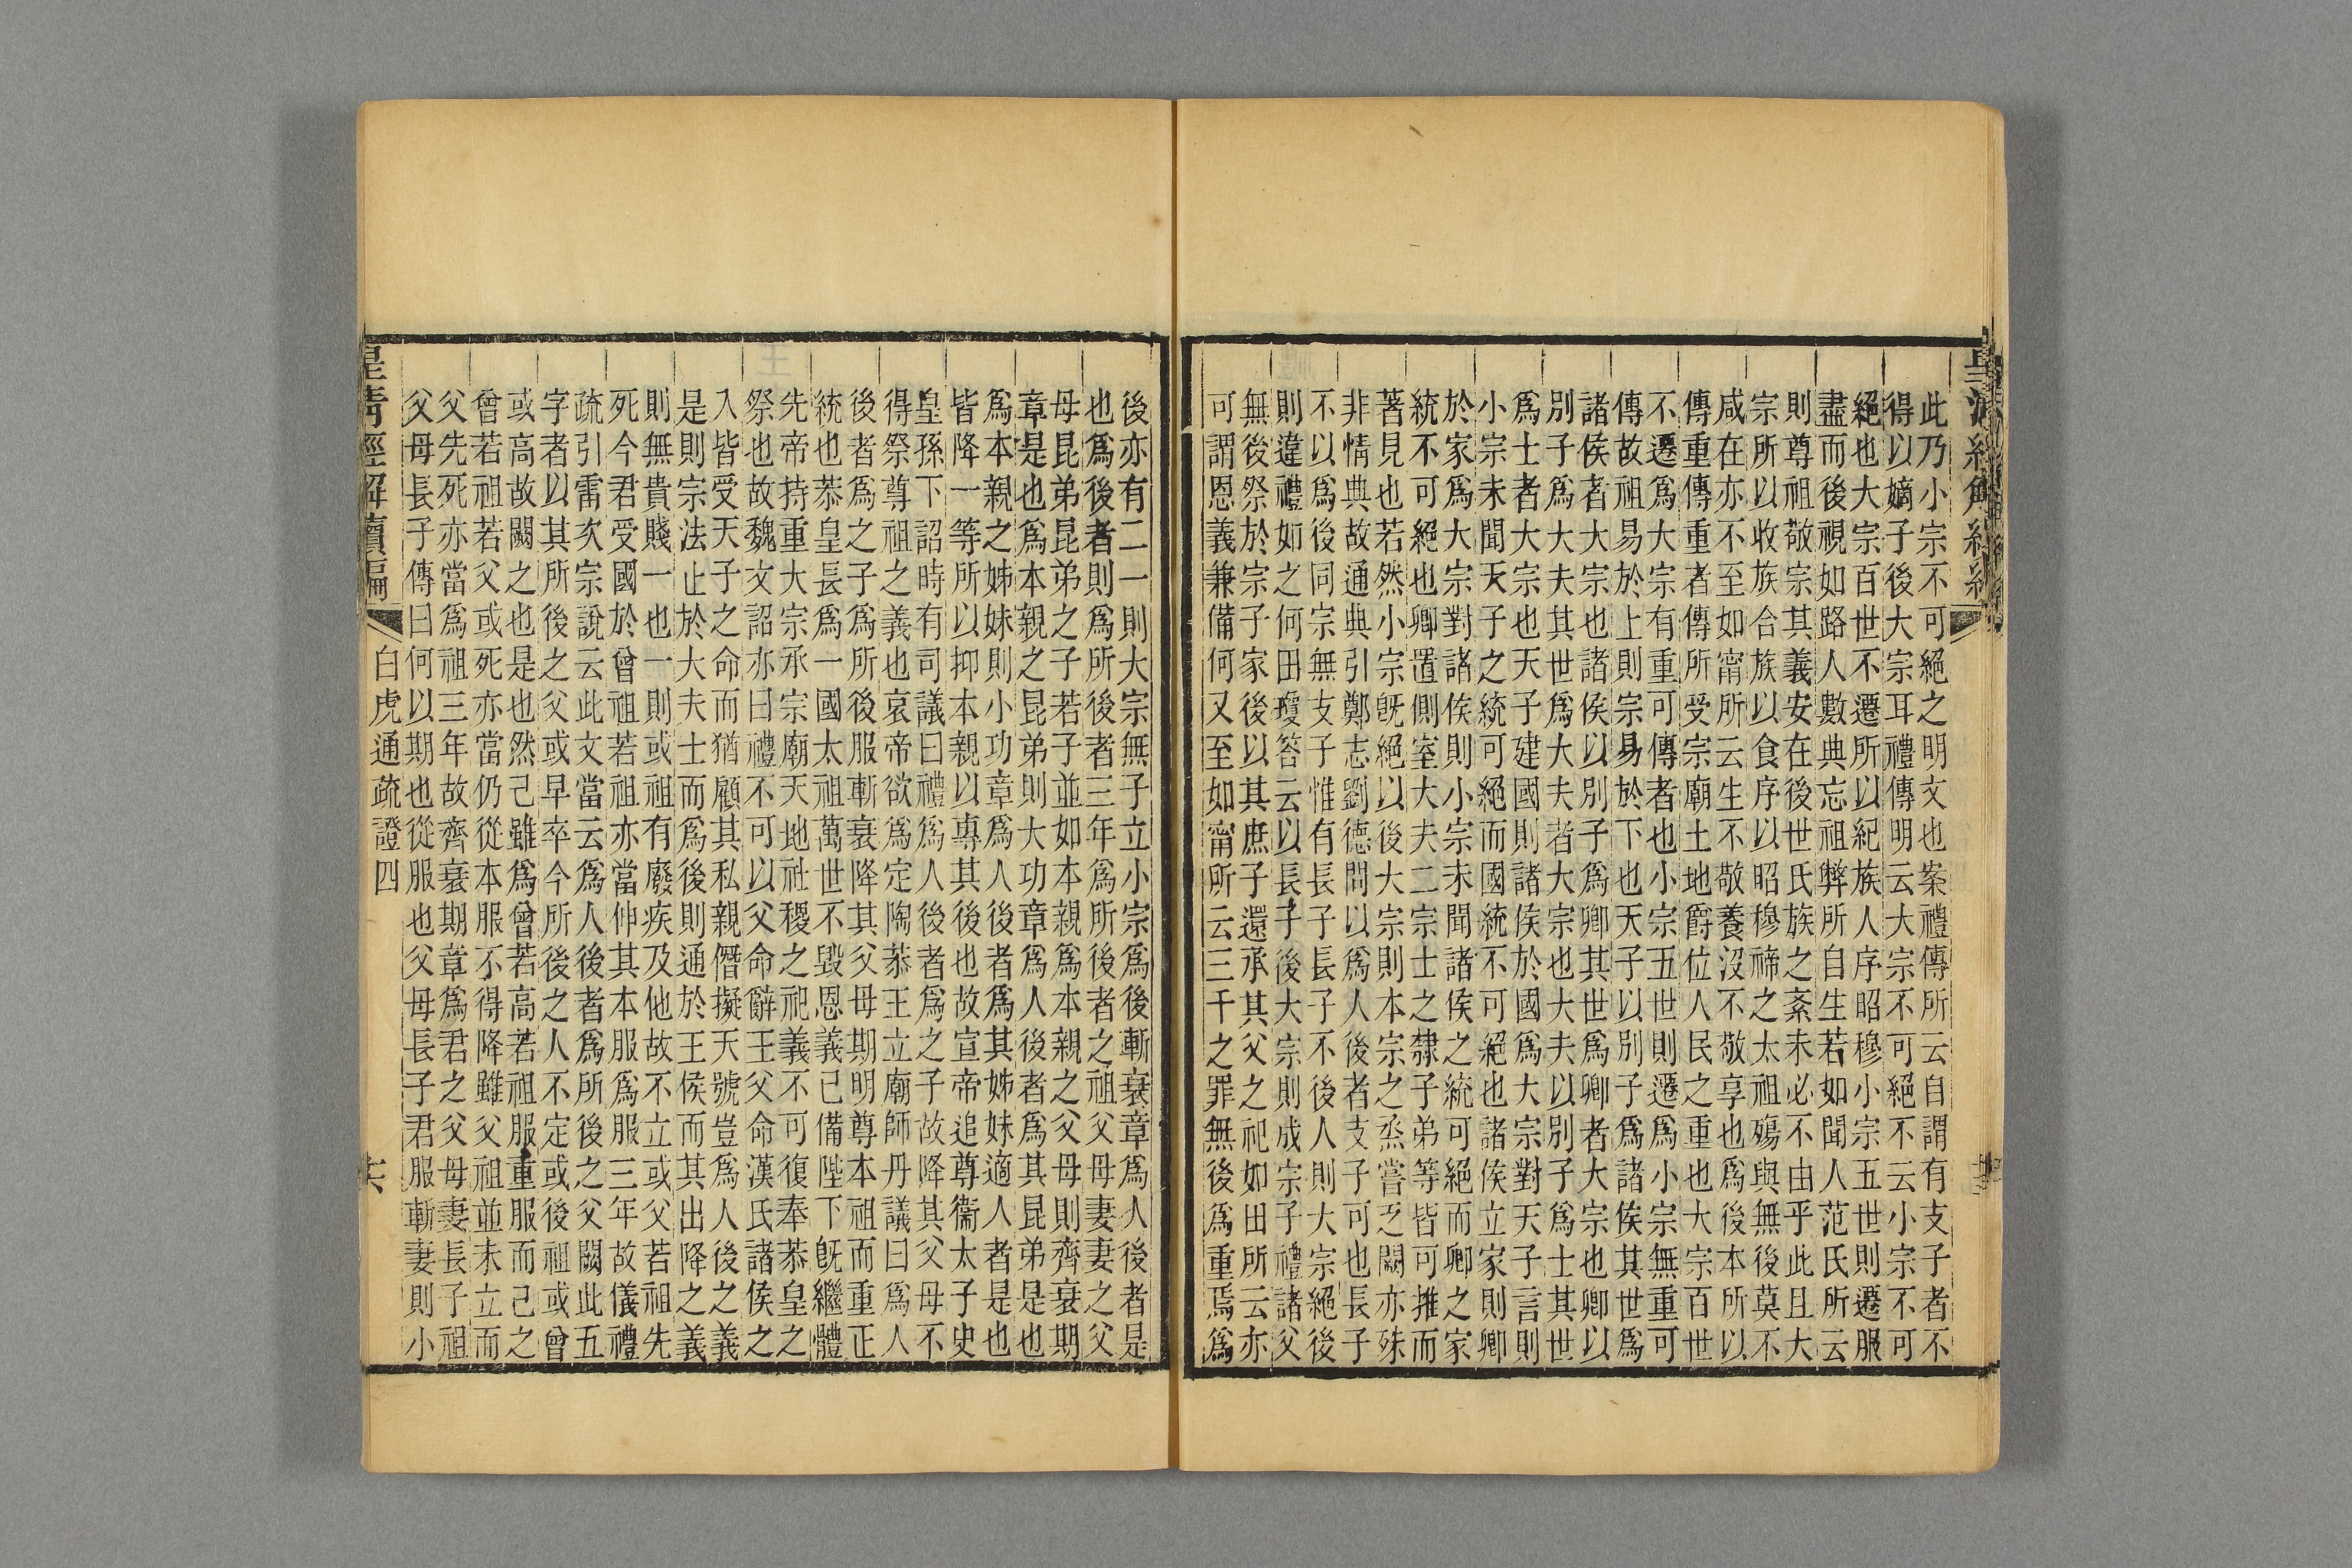 此乃小宗不可絕之明文也案禮傳所云自謂有支子者不
得以嫡子後大宗耳禮傳明云大宗不可絕不云小宗不可
絕也大宗百世不遷所以紀族人序昭穆小宗五世則遷服
盡而後視如路人數典忘祖弊所自生若如聞人范氏所云
則尊祖敬宗其義安在後世氏族之紊未必不由乎此且大
宗所以收族合族以食序以昭穆禘之太祖殤與無後莫不
咸在亦不至如甯所云生不敬養沒不敬享也爲後本所以
傳重傳重者傳所受宗廟土地爵位人民之重也大宗百世
不遷爲大宗有重可傳者也小宗五世則遷爲小宗無重可
傳故祖易於上則宗易於下也天子以別子爲諸侯其世爲
諸侯者大宗也諸侯以別子爲卿其世爲卿者大宗也卿以
別子爲大夫其世爲大夫者大宗也大夫以別子爲士其世
爲士者大宗也天子建國則諸侯於國爲大宗對天子言則
小宗未聞天子之統可絕而國統不可絕也諸侯立家則卿
於家爲大宗對諸侯則小宗未聞諸侯之統可絕而卿之家
統不可絕也卿置側室大夫二宗士之隸子弟等皆可推而
著見也若然小宗旣絕以後大宗則本宗之烝嘗乏闕亦殊
非情典故通典引鄭志劉德問以爲人後者支子可也長子
不以爲後同宗無支子惟有長子長子不後人則大宗絕後
則違禮如之何田瓊答云以長子後大宗則成宗子禮諸父
無後祭於宗子家後以其庶子還承其父之祀如田所云亦
可謂恩義兼備何又至如甯所云三千之罪無後爲重焉爲
後亦有二一則大宗無子立小宗爲後斬衰章爲人後者是
也爲後者則爲所後者三年爲所後者之祖父母妻妻之父
母昆弟昆弟之子若子並如本親爲本親之父母則齊衰期
章是也爲本親之昆弟則大功章爲人後者爲其昆弟是也
爲本親之姊妹則小功章爲人後者爲其姊妹適人者是也
皆降一等所以抑本親以專其後也故宣帝追尊衞太子史
皇孫下詔時有司議曰禮爲人後者爲之子故降其父母不
得祭尊祖之義也哀帝欲爲定陶恭王立廟師丹議曰爲人
後者爲之子爲所後服斬衰降其父母期明尊本祖而重正
統也恭皇長爲一國太祖萬世不毀恩義已備陛下旣繼體
先帝持重大宗承宗廟天地社稷之祀義不可復奉恭皇之
祭也故魏文詔亦曰禮不可以父命辭王父命漢氏諸侯之
入皆受天子之命而猶顧其私親僭擬天號豈爲人後之義
是則宗法止於大夫士而爲後則通於王侯而其出降之義
則無貴賤一也一則或祖有廢疾及他故不立或父若祖先
死今君受國於曾祖若祖亦當伸其本服爲服三年故儀禮
疏引雷次宗說云此文當云爲人後者爲所後之父闕此五
字者以其所後之父或早卒今所後之人不定或後祖或曾
或高故闕之也是也然己雖爲曾若高若祖服重服而己之
曾若祖若父或死亦當仍從本服不得降雖父祖並未立而
父先死亦當爲祖三年故齊衰期章爲君之父母妻長子祖
父母長子傳曰何以期也從服也父母長子君服斬妻則小
皇清經解續編
白虎通疏證四